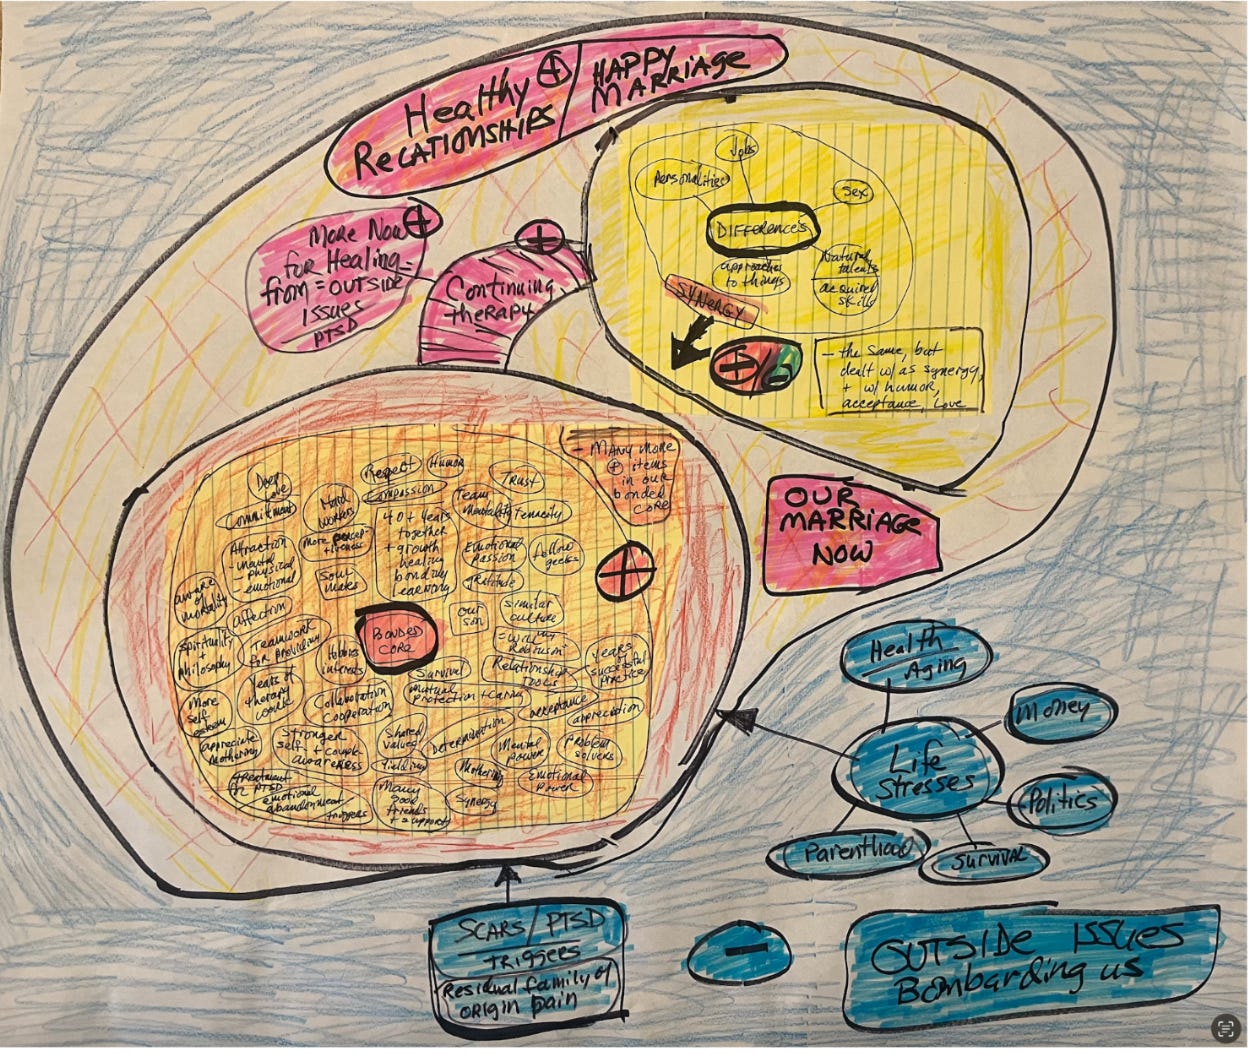 Healthy ⊕
RELATIONSHIPS
HAPPY
MARRIAGE
More Now ⊕
for Healing =
from = OUTSIDE
ISSUES
— PTSD
+
Continuing
therapy
Jobs
Personalities
Sex
DIFFERENCES
approaches
to things
Natural
talents
acquired
skills
SYNERGY
+/-
— the same, but
dealt w/ as synergy,
+ w/ humor,
acceptance, Love
- MANY MORE
⊕ items
in our
bonded
CORE
Deep
Love
Commitment
Hard
workers
Respect
Humor
Compassion
Trust
Team
Mentality
Tenacity
Attraction
- mental
- physical
- emotional
40+ years
together
+ growth
healing
bonding
Learning
Emotional
Passion
fellow
geeks
gratitude
+
aware
of
mortality
Soul
mates
affection
BONDED
CORE
our
son
similar
culture
Spirituality
Philosophy
Teamwork
for providing
Hobbies
interests
Survival
Mutual
Protection + Caring
Relationship
TOOLS
years
successful
practice
More
self
esteem
Years of
therapy
work
Collaboration
Cooperation
acceptance
appreciation
appreciate
mothering
Stronger
self + couple
awareness
Shared
values
Yielding
Determination
Mental
power
Problem
solvers
Mothering
Emotional
Power
treatment
for PTSD
emotional
abandonment
triggers
Many
good
friends
+ = support
Synergy
OUR
MARRIAGE
NOW
Health
Aging
Money
Life
Stresses
Politics
Parenthood
SURVIVAL
SCARS / PTSD
TRIGGERS
Residual family of
ORIGIN PAIN
-
OUTSIDE ISSUES
Bombarding us